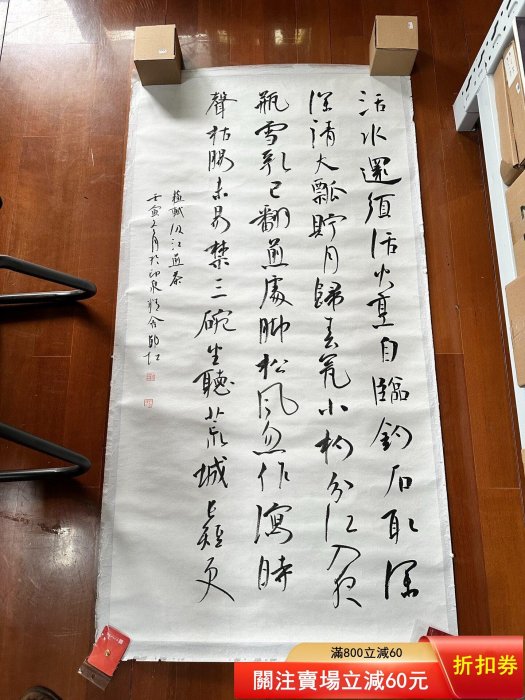 活水還須活火烹自臨釣石取深
深清大瓢貯月歸春甕小杓分江入夜
瓶雪乳已翻煎處脚松風忽作瀉時
聲枯腸未易禁三碗坐聽荒城長短更
蘇軾汲江煎茶
壬寅
滿800立減60
關注賣場立減60元
折扣券